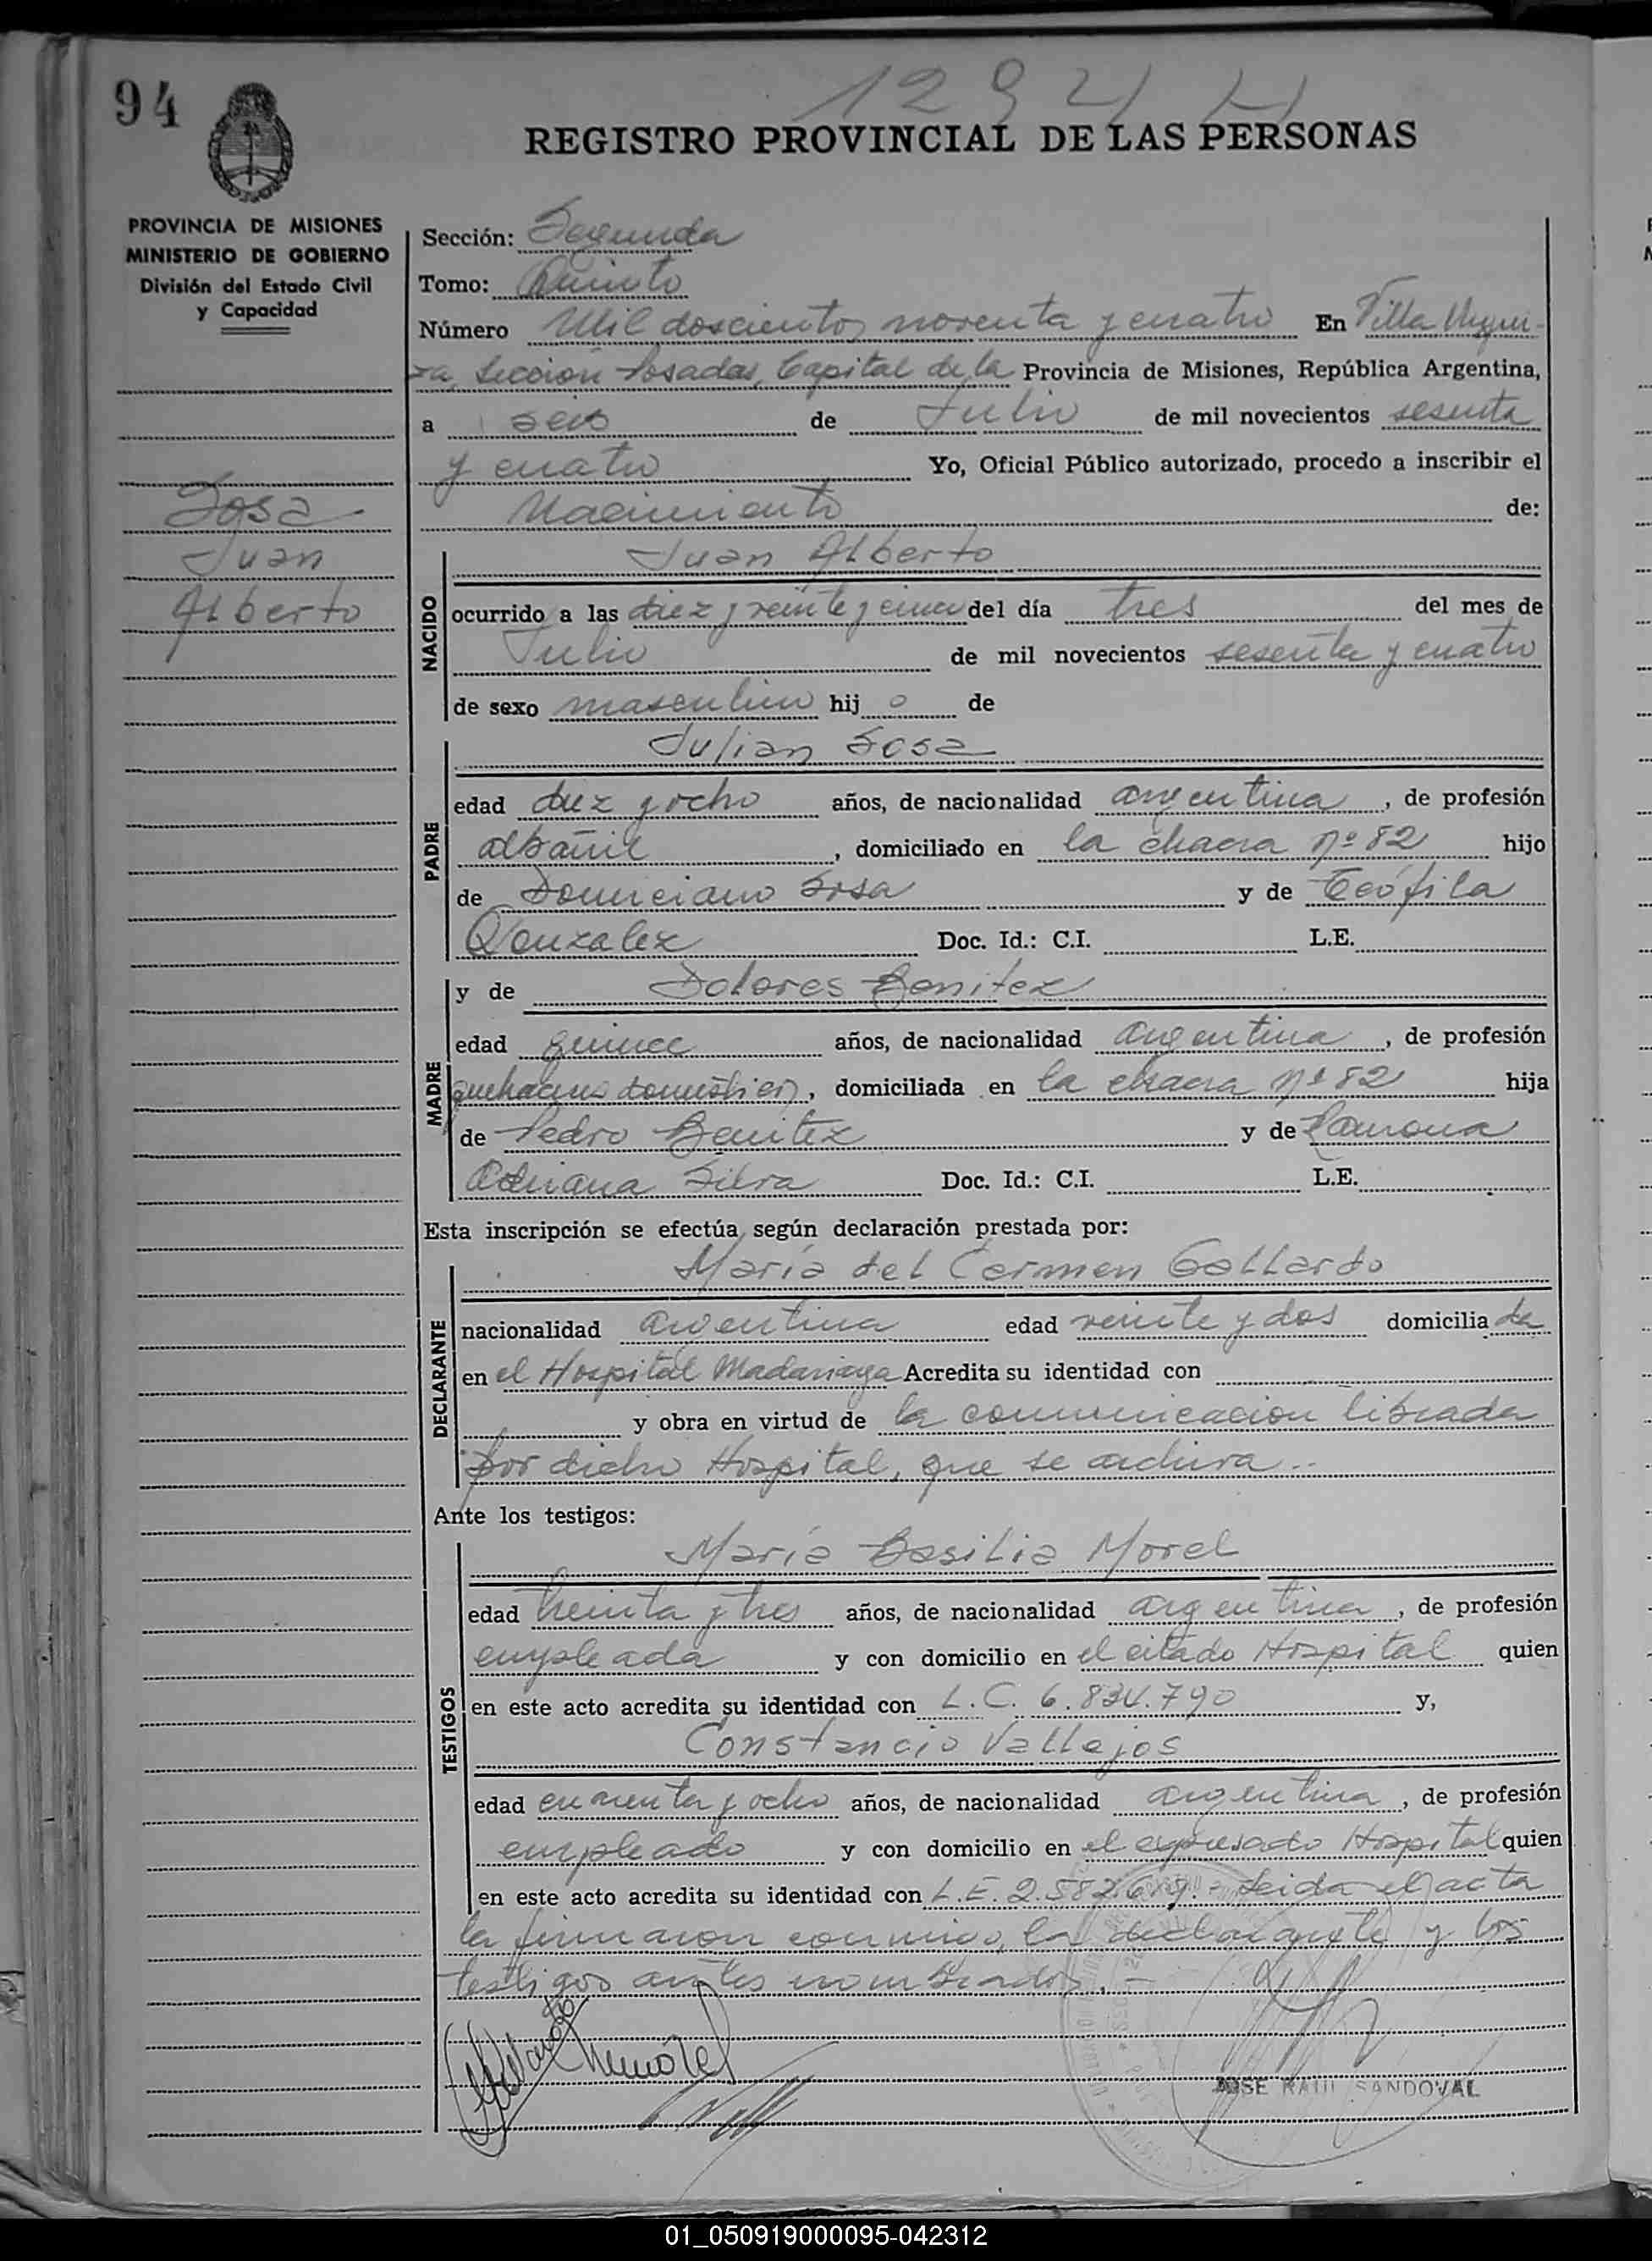 94
1294
REGISTRO PROVINCIAL DE LAS PERSONAS
PROVINCIA DE MISIONES
MINISTERIO DE GOBIERNO
División del Estado Civil
y Capacidad
Sosa
Juan
Alberto
Sección: Segunda
Tomo: Quinto
Número Mil doscientos noventa y cuatro En Villa Urqui-
za, Sección Posadas, Capital de la Provincia de Misiones, República Argentina,
a seis de Julio de mil novecientos sesenta
y cuatro Yo, Oficial Público autorizado, procedo a inscribir el
Nacimiento de:
NACIDO
Juan Alberto
ocurrido a las diez y veinte y cinco del día tres del mes de
Julio de mil novecientos sesenta y cuatro
de sexo masculino hij o de
PADRE
Julian Sosa
edad diez y ocho años, de nacionalidad argentina, de profesión
albañil, domiciliado en la chacra nº 82 hijo
de Domiciano Sosa y de Teófila
Gonzalez Doc. Id.: C.I. L.E.
MADRE
y de Dolores Benitez
edad quince años, de nacionalidad argentina, de profesión
quehaceres domésticos, domiciliada en la chacra nº 82 hija
de Pedro Benitez y de Ramona
Adriana Silva Doc. Id.: C.I. L.E.
Esta inscripción se efectúa según declaración prestada por:
DECLARANTE
María del Carmen Gallardo
nacionalidad argentina edad veinte y dos domicilia da
en el Hospital Madariaga Acredita su identidad con
y obra en virtud de la comunicación librada
por dicho Hospital, que se archiva..
Ante los testigos:
TESTIGOS
María Basilia Morel
edad treinta y tres años, de nacionalidad argentina, de profesión
empleada y con domicilio en el citado Hospital quien
en este acto acredita su identidad con L.C. 6.834.790 y,
Constancio Vallejos
edad cuarenta y ocho años, de nacionalidad argentina, de profesión
empleado y con domicilio en el expresado Hospital quien
en este acto acredita su identidad con L.E. Leida el acta
la firmaron conmigo, la declarante y los
testigos antes nombrados.-
JOSE RAUL SANDOVAL
01_050919000095-042312